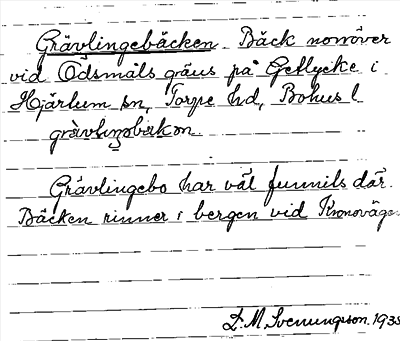 Grävlingebäcken. Bäck norröver
vid Ödsmåls gräns på Getlycke i
Hjärtum sn, Torpe hd, Bohus l
grävlinᵹobäkon.
Grävlingebo har väl funnits där.
Bäcken rinner i bergen vid Kronoväge
L.M. Svenungsson. 1935